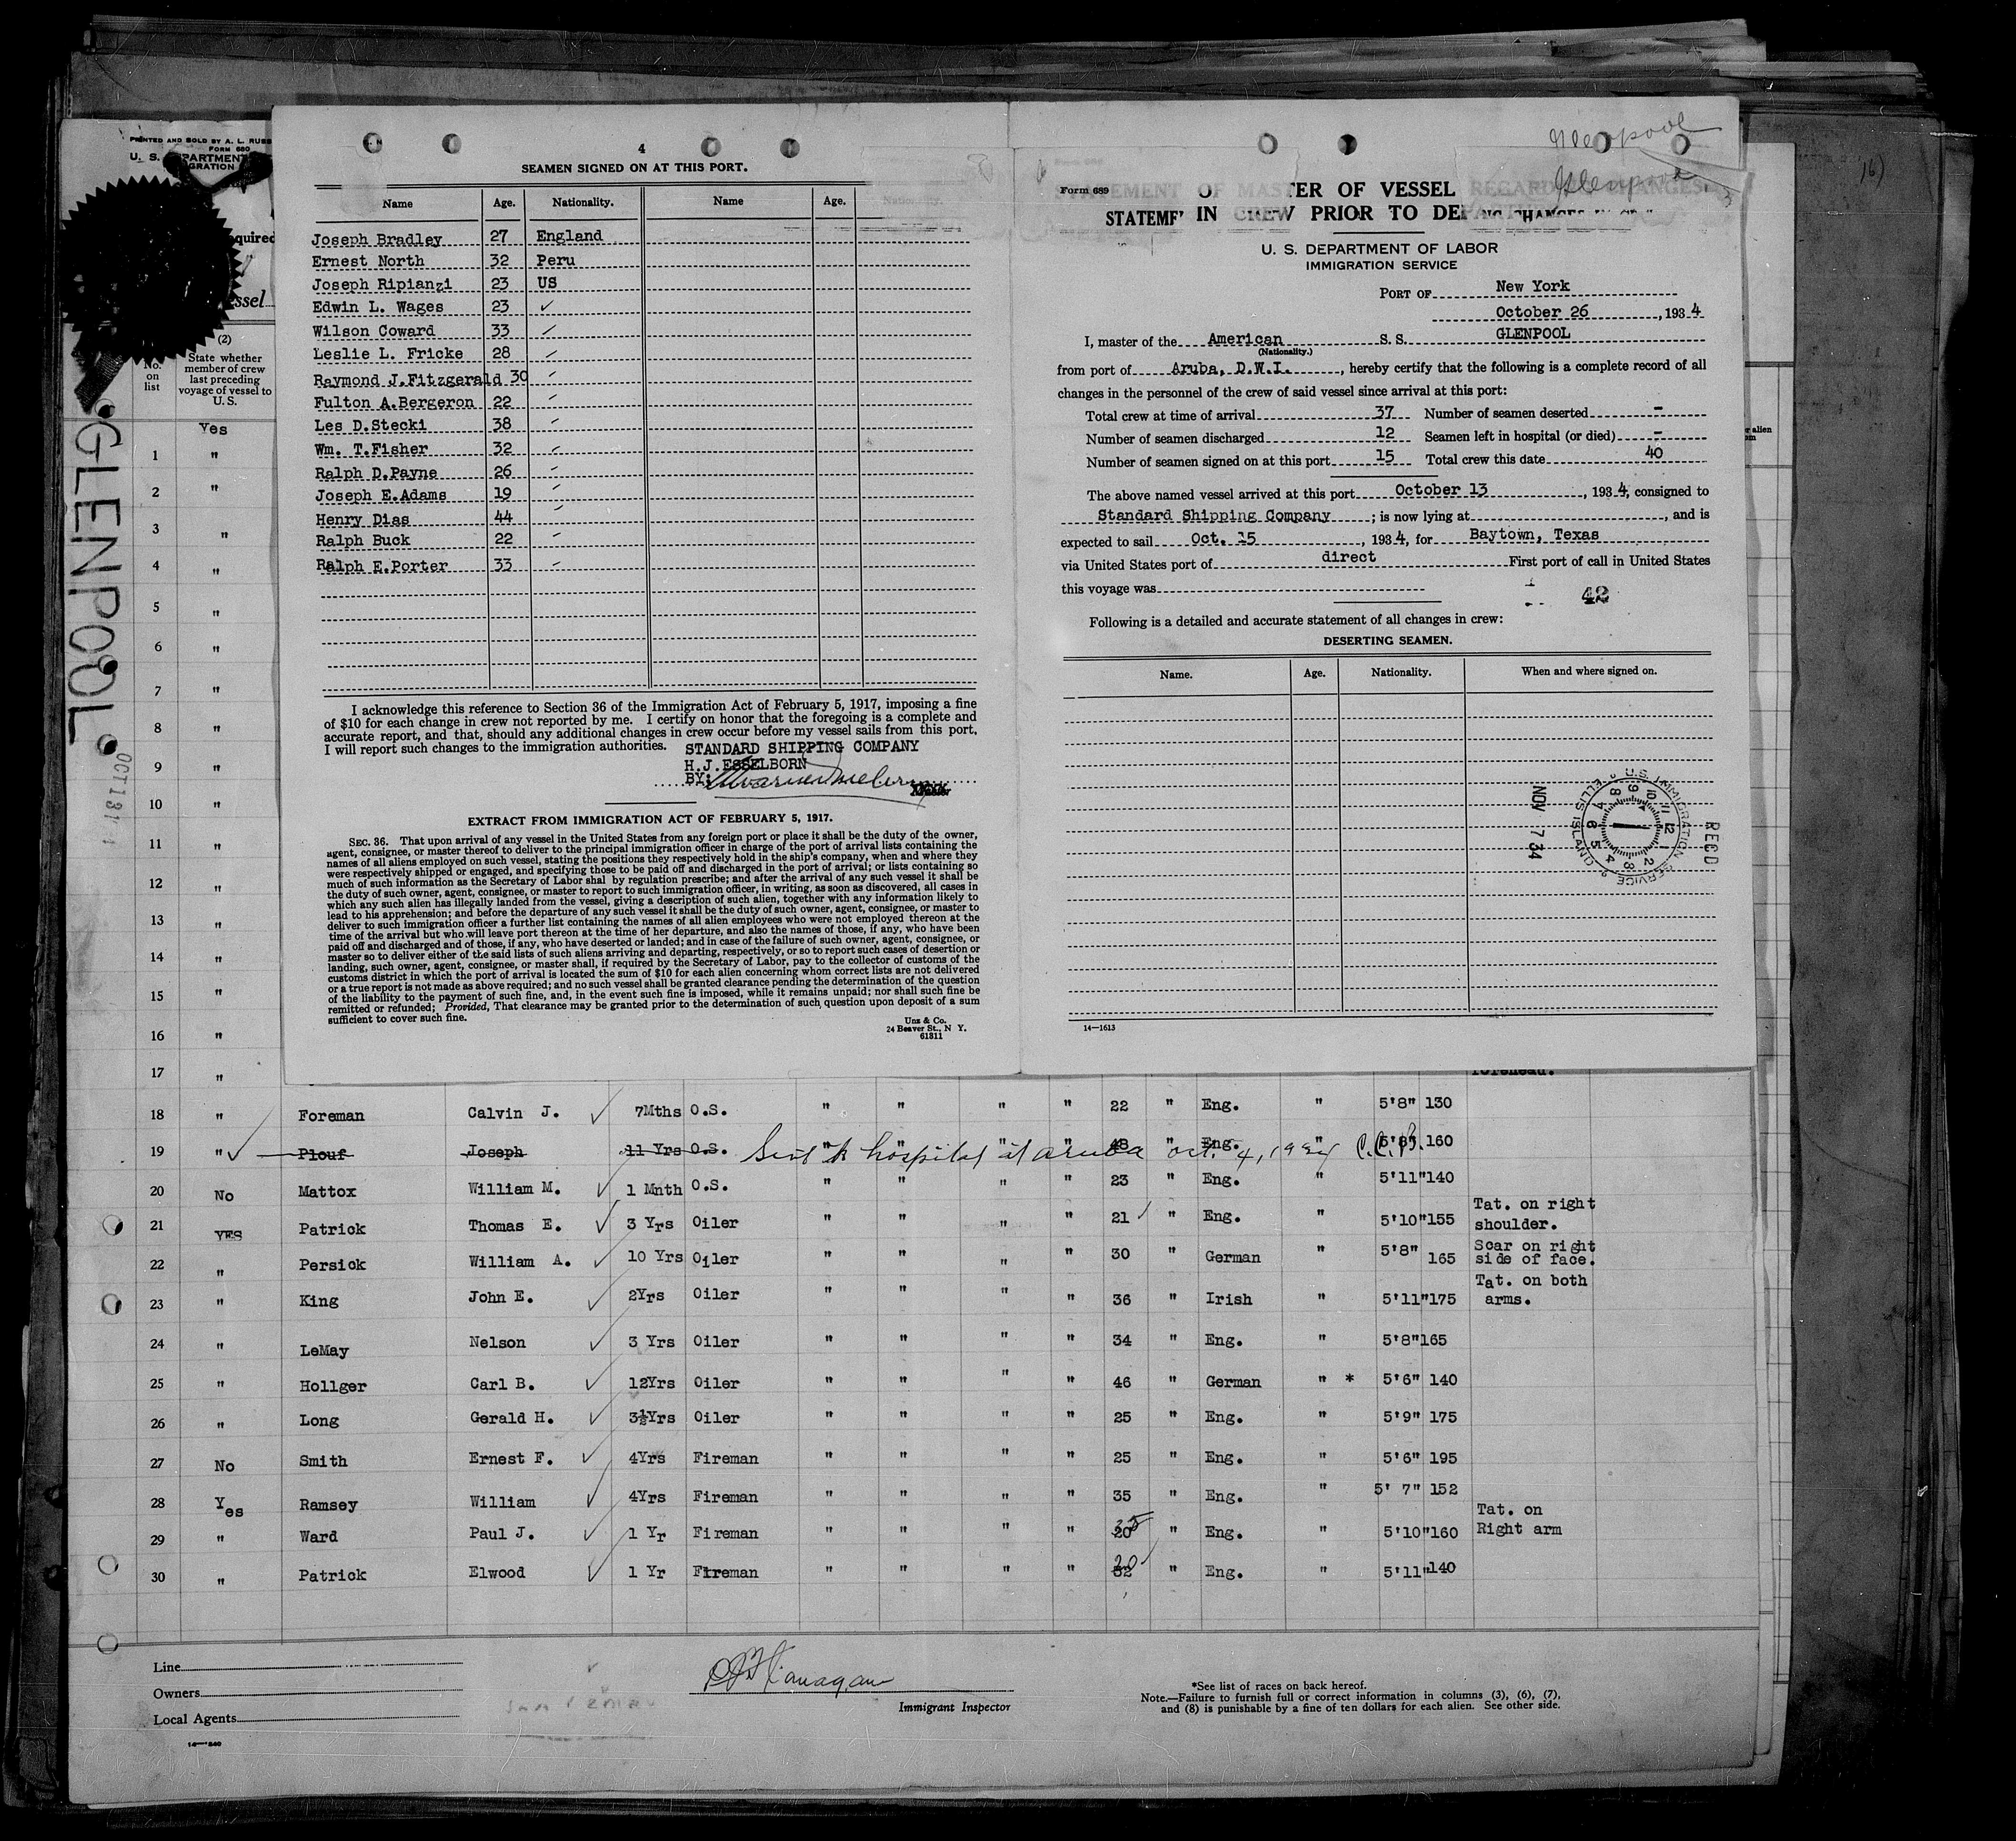 PRINTED AND SOLD BY A. L. RUSS
FORM 680
U. S. DEPARTMENT
GRATION
quired
ssel
No.
on
list
(2)
State whether
member of crew
last preceding
voyage of vessel to
U. S.
GLENPOOL
OCT 13
4
SEAMEN SIGNED ON AT THIS PORT.
Name Age. Nationality. Name Age. Nationality.
Joseph Bradley 27 England
Ernest North 32 Peru
Joseph Ripianzi 23 US
Edwin L. Wages 23 ✓
Wilson Coward 33
Leslie L. Fricke 28
Raymond J.Fitzgerald 30
Fulton A.Bergeron 22
Les D.Stecki 38
Wm. T.Fisher 32
Ralph D.Payne 26
Joseph E.Adams 19
Henry Dias 44
Ralph Buck 22
Ralph E.Porter 33
I acknowledge this reference to Section 36 of the Immigration Act of February 5, 1917, imposing a fine
of $10 for each change in crew not reported by me. I certify on honor that the foregoing is a complete and
accurate report, and that, should any additional changes in crew occur before my vessel sails from this port,
I will report such changes to the immigration authorities.
STANDARD SHIPPING COMPANY
H.J.ESSELBORN
BY:
Master
EXTRACT FROM IMMIGRATION ACT OF FEBRUARY 5, 1917.
SEC. 36. That upon arrival of any vessel in the United States from any foreign port or place it shall be the duty of the owner,
agent, consignee, or master thereof to deliver to the principal immigration officer in charge of the port of arrival lists containing the
names of all aliens employed on such vessel, stating the positions they respectively hold in the ship's company, when and where they
were respectively shipped or engaged, and specifying those to be paid off and discharged in the port of arrival; or lists containing so
much of such information as the Secretary of Labor shal by regulation prescribe; and after the arrival of any such vessel it shall be
the duty of such owner, agent, consignee, or master to report to such immigration officer, in writing, as soon as discovered, all cases in
which any such alien has illegally landed from the vessel, giving a description of such alien, together with any information likely to
lead to his apprehension; and before the departure of any such vessel it shall be the duty of such owner, agent, consignee, or master to
deliver to such immigration officer a further list containing the names of all alien employees who were not employed thereon at the
time of the arrival but who will leave port thereon at the time of her departure, and also the names of those, if any, who have been
paid off and discharged and of those, if any, who have deserted or landed; and in case of the failure of such owner, agent, consignee, or
master so to deliver either of the said lists of such aliens arriving and departing, respectively, or so to report such cases of desertion or
landing, such owner, agent, consignee, or master shall, if required by the Secretary of Labor, pay to the collector of customs of the
customs district in which the port of arrival is located the sum of $10 for each alien concerning whom correct lists are not delivered
or a true report is not made as above required; and no such vessel shall be granted clearance pending the determination of the question
of the liability to the payment of such fine, and, in the event such fine is imposed, while it remains unpaid; nor shall such fine be
remitted or refunded; Provided, That clearance may be granted prior to the determination of such question upon deposit of a sum
sufficient to cover such fine.
Unz & Co.
24 Beaver St., N Y.
61311
Glenpool
Glenpool
Form 689
STATEMENT OF MASTER OF VESSEL REGARDING CHANGES
IN CREW PRIOR TO DEPARTURE
U. S. DEPARTMENT OF LABOR
IMMIGRATION SERVICE
PORT OF New York
October 26, 1934
I, master of the American S. S. GLENPOOL
(Nationality.)
from port of Aruba, D.W.I., hereby certify that the following is a complete record of all
changes in the personnel of the crew of said vessel since arrival at this port:
Total crew at time of arrival 37 Number of seamen deserted -
Number of seamen discharged 12 Seamen left in hospital (or died) -
Number of seamen signed on at this port 15 Total crew this date 40
The above named vessel arrived at this port October 13, 1934, consigned to
Standard Shipping Company; is now lying at , and is
expected to sail Oct. 15, 1934, for Baytown, Texas
via United States port of direct First port of call in United States
this voyage was
42
Following is a detailed and accurate statement of all changes in crew:
DESERTING SEAMEN.
Name. Age. Nationality. When and where signed on.
U.S. IMMIGRATION SERVICE
ELLIS ISLAND
RECD
NOV 7 34
14—1613
(16)
Yes
1 "
2 "
3 "
4 "
5 "
6 "
7 "
8 "
9 "
10 "
11 "
12 "
13 "
14 "
15 "
16 "
17 " forehead.
18 " Foreman Calvin J. ✓ 7Mths O.S. " " " " 22 " Eng. " 5'8" 130
19 " ✓ Plouf Joseph 11 Yrs O.S. " " " " 48 " Eng. " 5'8" 160
Sent to hospital at Aruba Oct. 4, 1934
20 No Mattox William M. ✓ 1 Mnth O.S. " " " " 23 " Eng. " 5'11" 140
21 YES Patrick Thomas E. ✓ 3 Yrs Oiler " " " " 21 ✓ " Eng. " 5'10" 155 Tat. on right shoulder.
22 " Persick William A. ✓ 10 Yrs Oiler " " " " 30 " German " 5'8" 165 Scar on right side of face.
23 " King John E. ✓ 2Yrs Oiler " " " " 36 " Irish " 5'11" 175 Tat. on both arms.
24 " LeMay Nelson ✓ 3 Yrs Oiler " " " " 34 " Eng. " 5'8" 165
25 " Hollger Carl B. ✓ 12Yrs Oiler " " " " 46 " German " * 5'6" 140
26 " Long Gerald H. ✓ 3½Yrs Oiler " " " " 25 " Eng. " 5'9" 175
27 No Smith Ernest F. ✓ 4Yrs Fireman " " " " 25 " Eng. " 5'6" 195
28 Yes Ramsey William ✓ 4Yrs Fireman " " " " 35 " Eng. " 5' 7" 152
29 " Ward Paul J. ✓ 1 Yr Fireman " " " " 20 35 " Eng. " 5'10" 160 Tat. on Right arm
30 " Patrick Elwood ✓ 1 Yr Fireman " " " " 32 20 ✓ " Eng. " 5'11" 140
Line
Owners
Local Agents
Flanagan
Immigrant Inspector
*See list of races on back hereof.
Note.—Failure to furnish full or correct information in columns (3), (6), (7),
and (8) is punishable by a fine of ten dollars for each alien. See other side.